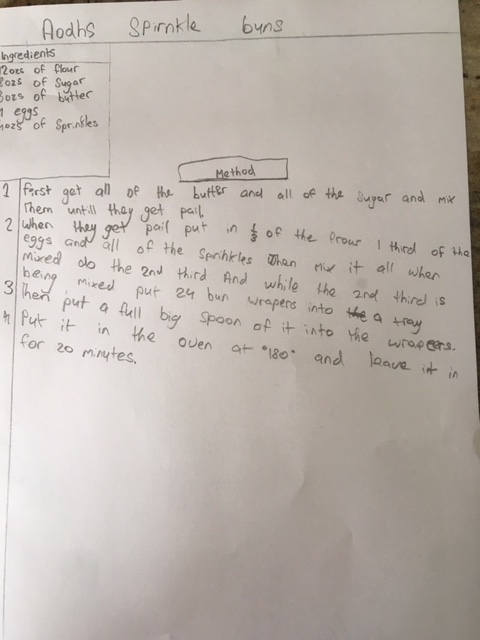 Aodhs Spirnkle buns
Ingredients
12ozs of flour
8ozs of Sugar
8ozs of butter
eggs
4ozs of Sprinkles
Method
1 first get all of the butter and all of the sugar and mix
Them untill they get pail.
2 when they get pail put in 1/3 of the flour 1 third of the
eggs and all of the Sprinkles Then mix it all when
mixed do the 2nd third And while the 2nd third is
being mixed put 24 bun wrapers into the a tray
3 Then put a full big spoon of it into the wrapers.
4 Put it in the oven at °180° and leave it in
for 20 minutes.